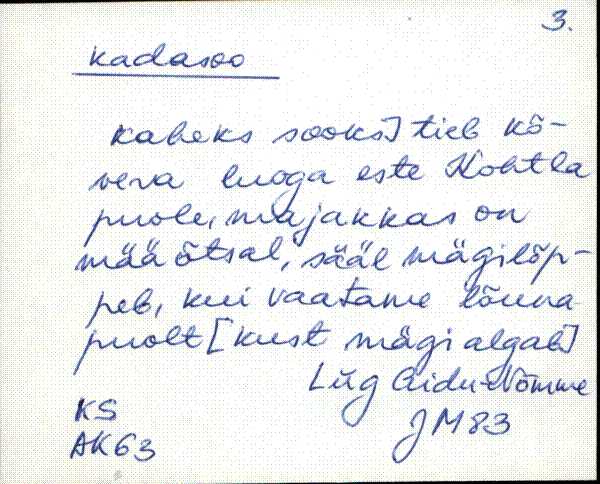 3.
kadasoo
kaheks sooks] tieb kõ-
vera luoga este Kohtla
puole, majakkas on
mää õtsal, sääl mägi lõp-
peb, kui vaatame lõuna
puolt [kust mägi algab]
Lüg Aidu-Nõmme
KS
JM 83
AK63